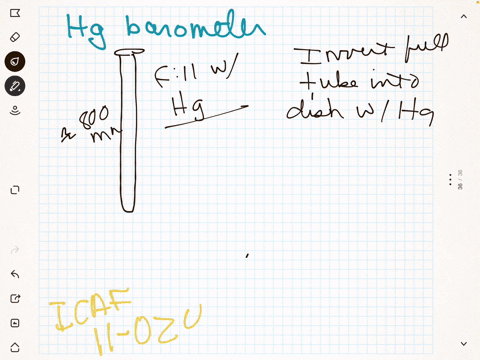 Hg barometer
≈ 800 mm
Fill w/
Hg
Invert full
tube into
dish w/ Hg
ICAF
11-020